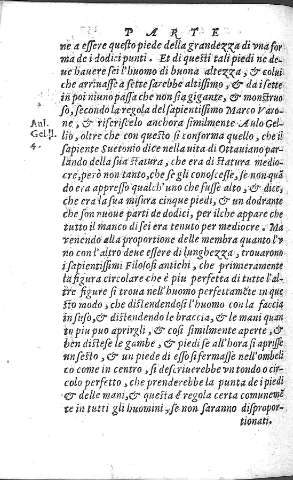 PARTE
ne a essere questo piede della grandezza di vna for
ma de i dodici punti. Et di questi tali piedi ne de-
ue hauere sei l'huomo di buona altezza, & colui
che arriuasse a sette sarebbe altissimo, & da i sette
in poi niuno passa che non sia gigante, & monstruo
so, secondo la regola del sapientissimo Marco Varo-
Aul. ne, & riferiscelo anchora similmente Aulo Gel-
Gel.l. lio, oltre che con questo si conforma quello, che il
4. sapiente Suetonio dice nella vita di Ottauiano par-
lando della sua statura, che era di statura medio-
cre, però non tanto, che se gli conoscesse, se non quā
do era appresso qualch'uno che fusse alto, & dice,
che era la sua misura cinque piedi, & un dodrante
che son nuoue punti de dodici, per ilche appare che
tutto il manco di sei era tenuto per mediocre. Ma
venendo alla proportione delle membra quanto l'v
no con l'altro deue essere di lunghezza, trouarono
i sapientissimi Filosofi antichi, che primeramente
la figura circolare che è piu perfetta di tutte l'al-
tre figure si troua nell'huomo perfettamēte in que
sto modo, che distendendosi l'huomo con la faccia
in suso, & distendendo le braccia, & le mani quan
to piu puo aprirgli, & cosi similmente aperte, &
ben distese le gambe, & piedi se all'hora si aprisse
un sesto, & un piede di esso si fermasse nell'ombeli
co come in centro, si descriuerebbe vn tondo o cir-
colo perfetto, che prenderebbe la punta de i piedi
& delle mani, & questa è regola certa comunemē
te in tutti gli huomini, se non saranno dispropor-
tionati.